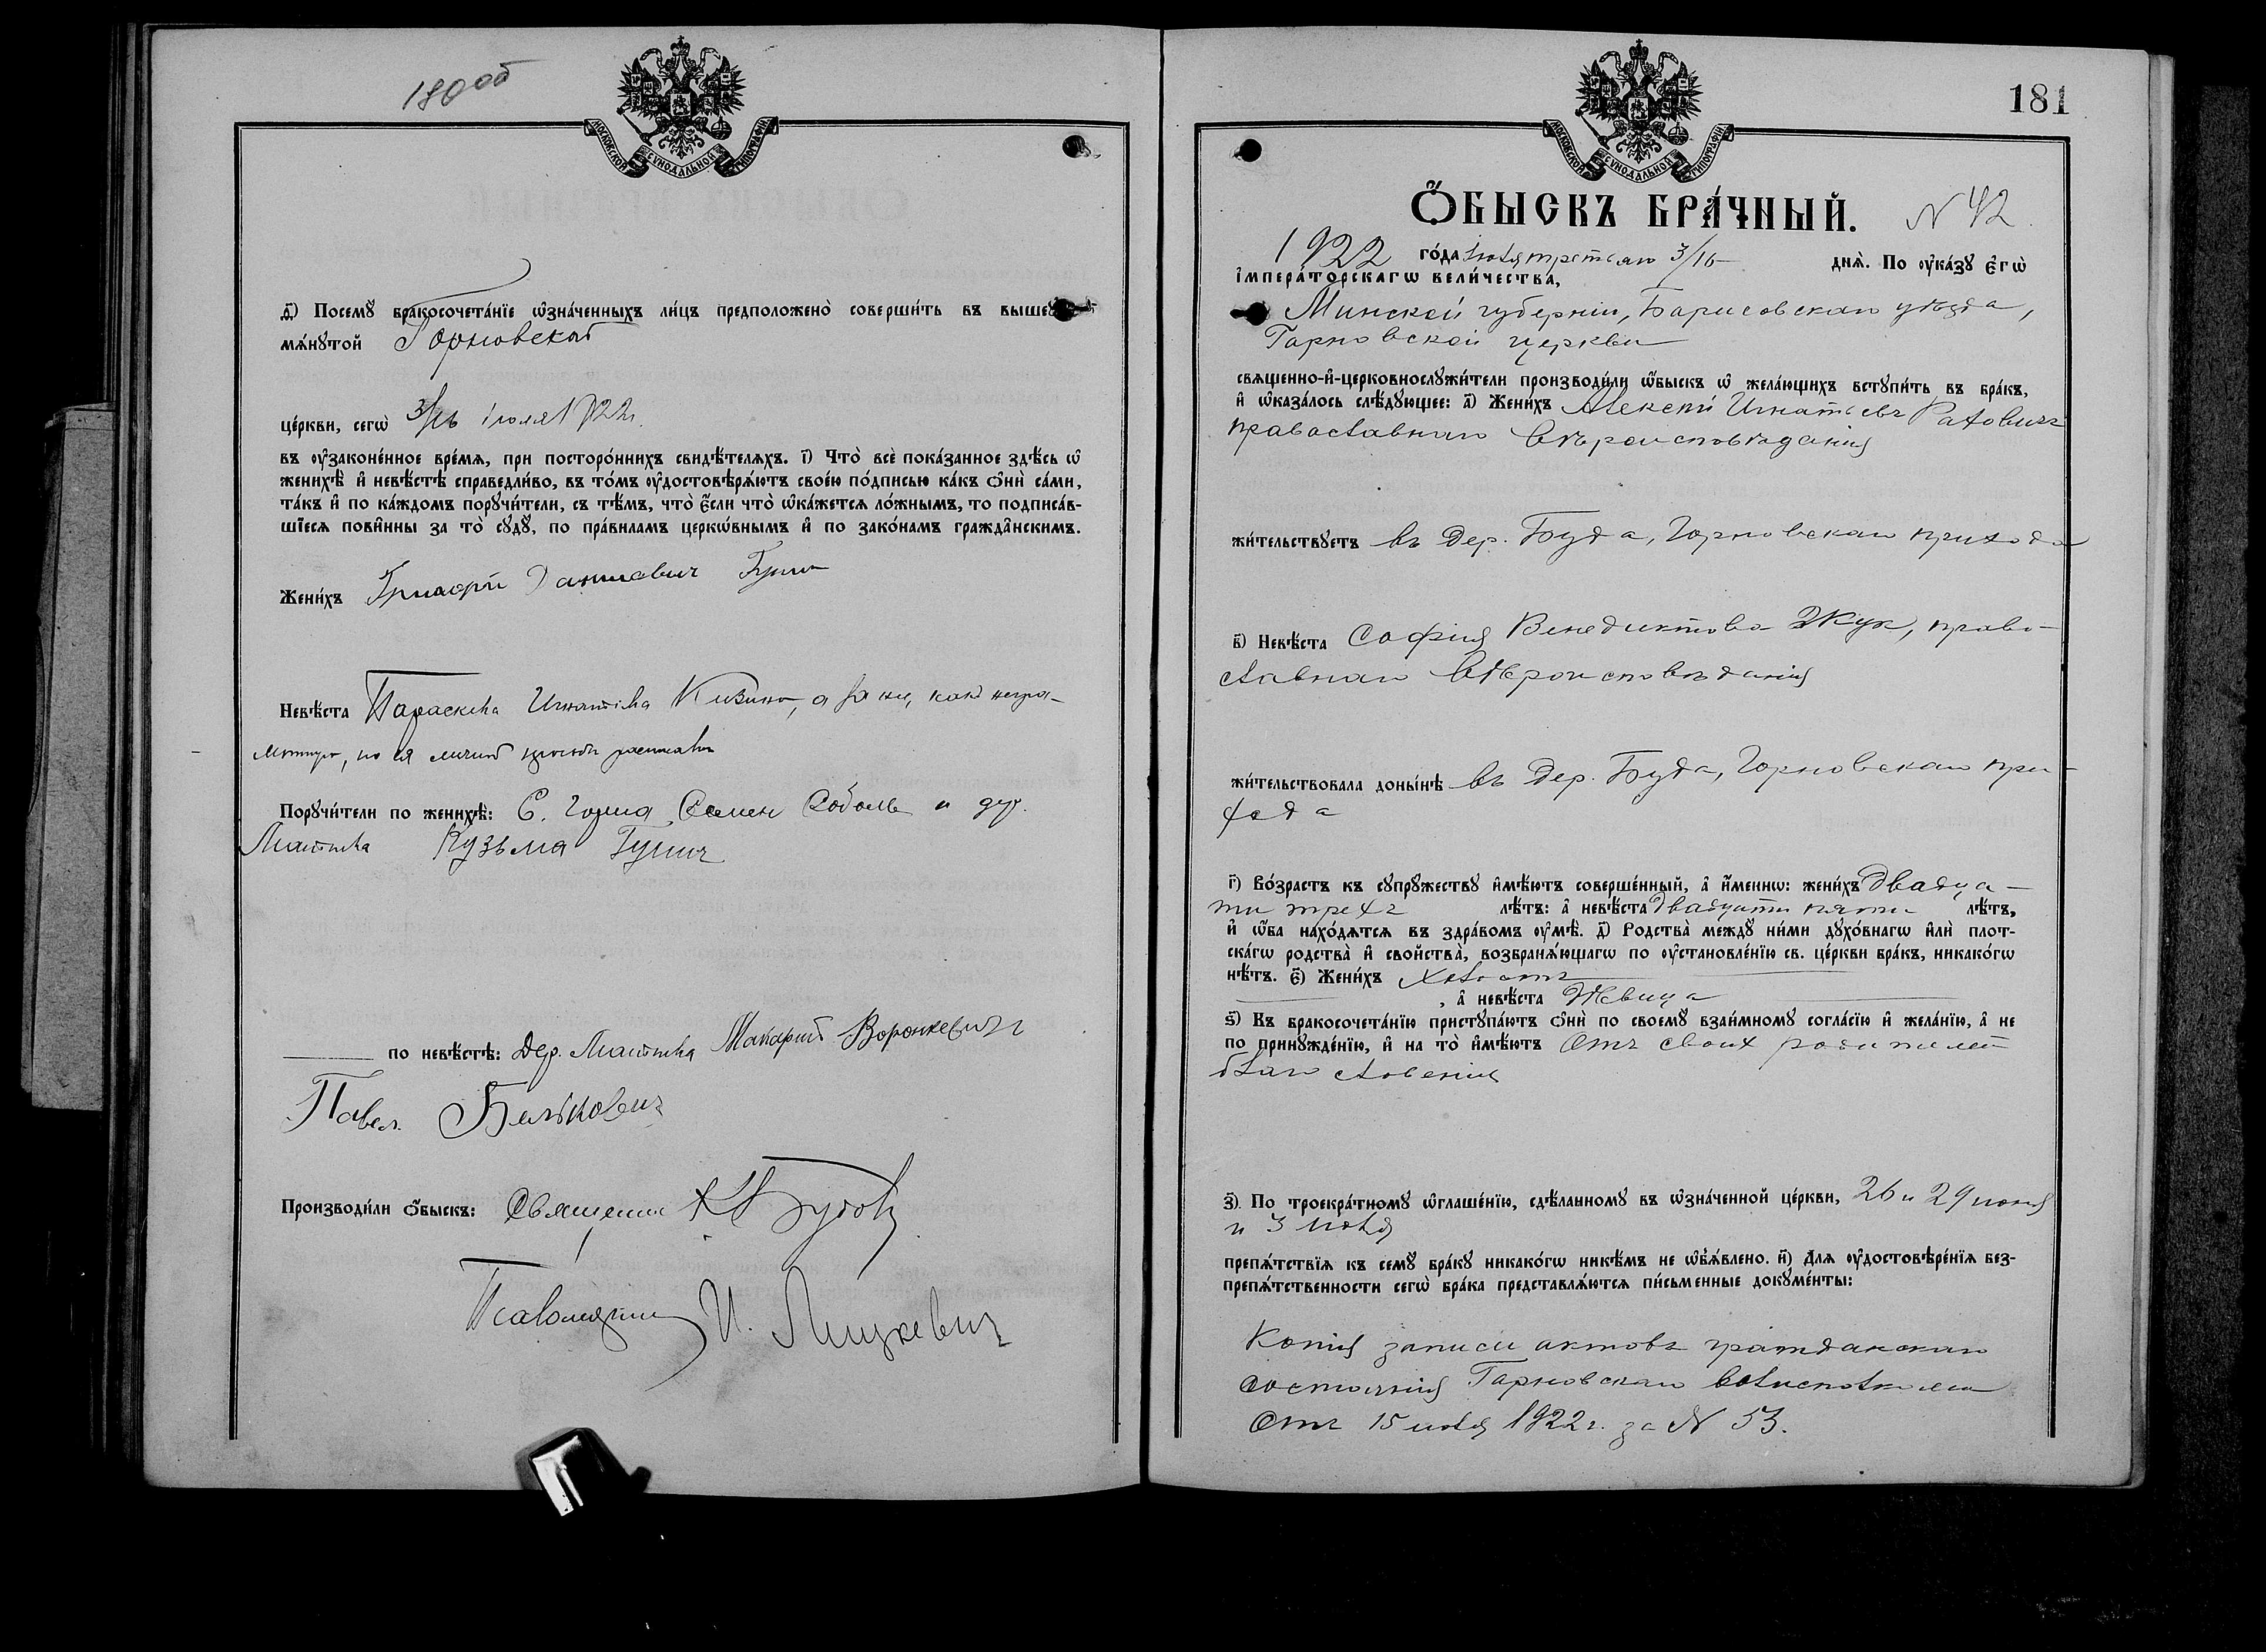 180об
МОСКОВСКОЙ СѴНОДАЛЬНОЙ ТИПОГРАФІИ
д҃) Посемꙋ̀ бракосочета́нїе ѡ҆зна́ченныхъ ли́цъ предположено̀ соверши́ть въ вышеꙋ
мѧ́нꙋтой Горновской
це́ркви, сегѡ̀ 3/16 іюля 1922 г.
въ ᲂу҆законе́нное вре́мѧ, при посторо́ннихъ свидѣ́телѧхъ. і҃) Что̀ всѐ пока́занное здѣ́сь ѡ҆
женихѣ̀ и҆ невѣ́стѣ справедли́во, въ то́мъ ᲂу҆достовѣрѧ́ютъ свое́ю по́дписью ка́къ ѻ҆нѝ са́ми,
та́къ и҆ по ка́ждомъ порꙋчи́тели, съ тѣ́мъ, что̀ є҆́сли что̀ ѡ҆ка́жетсѧ ло́жнымъ, то подписа́в-
шїесѧ пови́нны за то̀ сꙋдꙋ̀, по пра́виламъ церкѡ́внымъ и҆ по зако́намъ гражда́нскимъ.
Жени́хъ
Невѣ́ста Параскева Игнатіева а за ня, какъ негра-
мотную, по ея личной просьбѣ
Порꙋчи́тели по женихѣ̀: С. Горна Семен Соболь и дер.
Кузьма
по невѣ́стѣ: Дер. Макарий Воронкевичъ
Павел Бельковичъ
Производи́ли ѻ҆́быскъ: Священник
Псаломщикъ И. Мицкевичъ
181
МОСКОВСКОЙ СѴНОДАЛЬНОЙ ТИПОГРАФІИ
Ѻ҆́БЫСКЪ БРА́ЧНЫЙ. N 42
1922 го́да іюля третьяго 3/16 днѧ̀. По ᲂу҆ка́зꙋ є҆гѡ̀
і҆мпера́торскагѡ вели́чества,
Минской губерніи, Борисовскаго уѣзда,
Гарновской церкви
свѧщенно-и҆-церковнослꙋжи́тели производи́ли ѡ҆́быскъ ѡ҆ жела́ющихъ встꙋпи́ть въ бра́къ,
и҆ ѡ҆каза́лось слѣ́дꙋющее: а҃) Жени́хъ Алексѣй Игнатіевъ Раловичъ
православнаго вѣроисповѣданія
жи́тельствꙋетъ въ дер. Буда, Горновскаго прихода
в҃) Невѣ́ста Софія Венедиктова Жук, право-
славнаго вѣроисповѣданія
жи́тельствовала доны́нѣ въ дер. Буда, Горновскаго при-
хода
г҃) Во́зрастъ къ сꙋпрꙋ́жествꙋ и҆мѣ́ютъ соверше́нный, а҆ и҆́меннѡ: жени́хъ двадца-
ти трехъ лѣ́тъ: а҆ невѣ́ста двадцати пяти лѣ́тъ,
и҆ ѡ҆́ба нахо́дѧтсѧ въ здра́вомъ ᲂу҆мѣ̀. д҃) Родства̀ междꙋ̀ ни́ми дꙋхо́внагѡ и҆лѝ плот-
ска́гѡ родства̀ и҆ свойства̀, возбранѧ́ющагѡ по ᲂу҆становле́нїю св. це́ркви бра́къ, никако́гѡ
нѣ́тъ. є҃) Жени́хъ холостъ
, а҆ невѣ́ста дѣвица
ѕ҃) Къ бракосочета́нїю пристꙋпа́ютъ ѻ҆нѝ по своемꙋ̀ взаи́мномꙋ согла́сїю и҆ жела́нїю, а҆ не
по принꙋжде́нїю, и҆ на то̀ и҆мѣ́ютъ отъ своих родителей
благословенія
з҃) По троекра́тномꙋ ѡ҆глаше́нїю, сдѣ́ланномꙋ въ ѡ҆зна́ченной це́ркви, 26 и 29 іюня
и 3 іюля
препѧ́тствїѧ къ семꙋ̀ бра́кꙋ никако́гѡ никѣ́мъ не ѡ҆б̾ѧ́влено. и҃) Длѧ ᲂу҆достовѣре́нїѧ без-
препѧ́тственности сегѡ̀ бра́ка представлѧ́ютсѧ пи́сьменные докꙋме́нты:
Копія записи актовъ гражданскаго
состоянія Гарновскаго волисполкома
отъ 15 іюля 1922 г. за N 53.